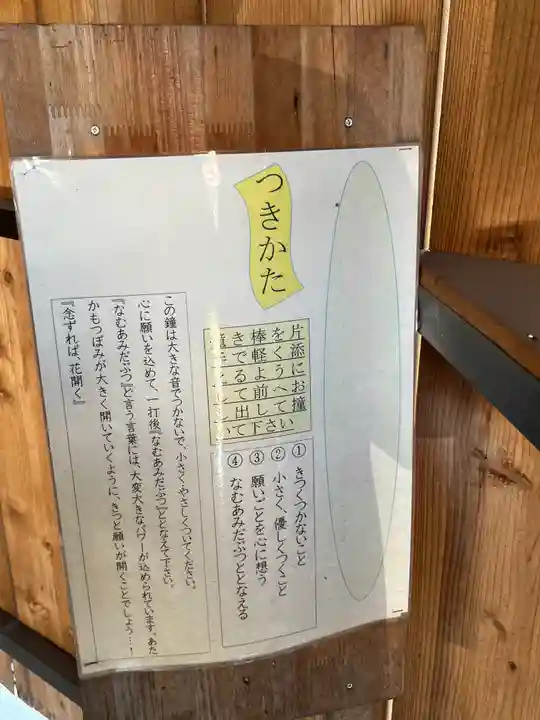 つきかた
① きつくつかないこと
② 小さく、優しくつくこと
③ 願いごとを心に想う
④ なむあみだぶつととなえる
この鐘は大きな音でつかないで、小さくやさしくついてください。
心に願いを込めて、一打後『なむあみだぶつ』ととなえて下さい。
『なむあみだぶつ』と言う言葉には、大変大きなパワーが込められています。あた
かもつぼみが大きく開いていくように、きっと願いが開くことでしょう…！
『念ずれば、花開く』